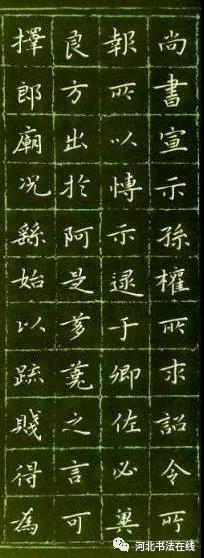 尚書宣示孫權所求詔令所
報所以博示逮于卿佐必冀
良方出於阿是芻蕘之言可
擇郎廟況繇始以疏賤得為
河北书法在线